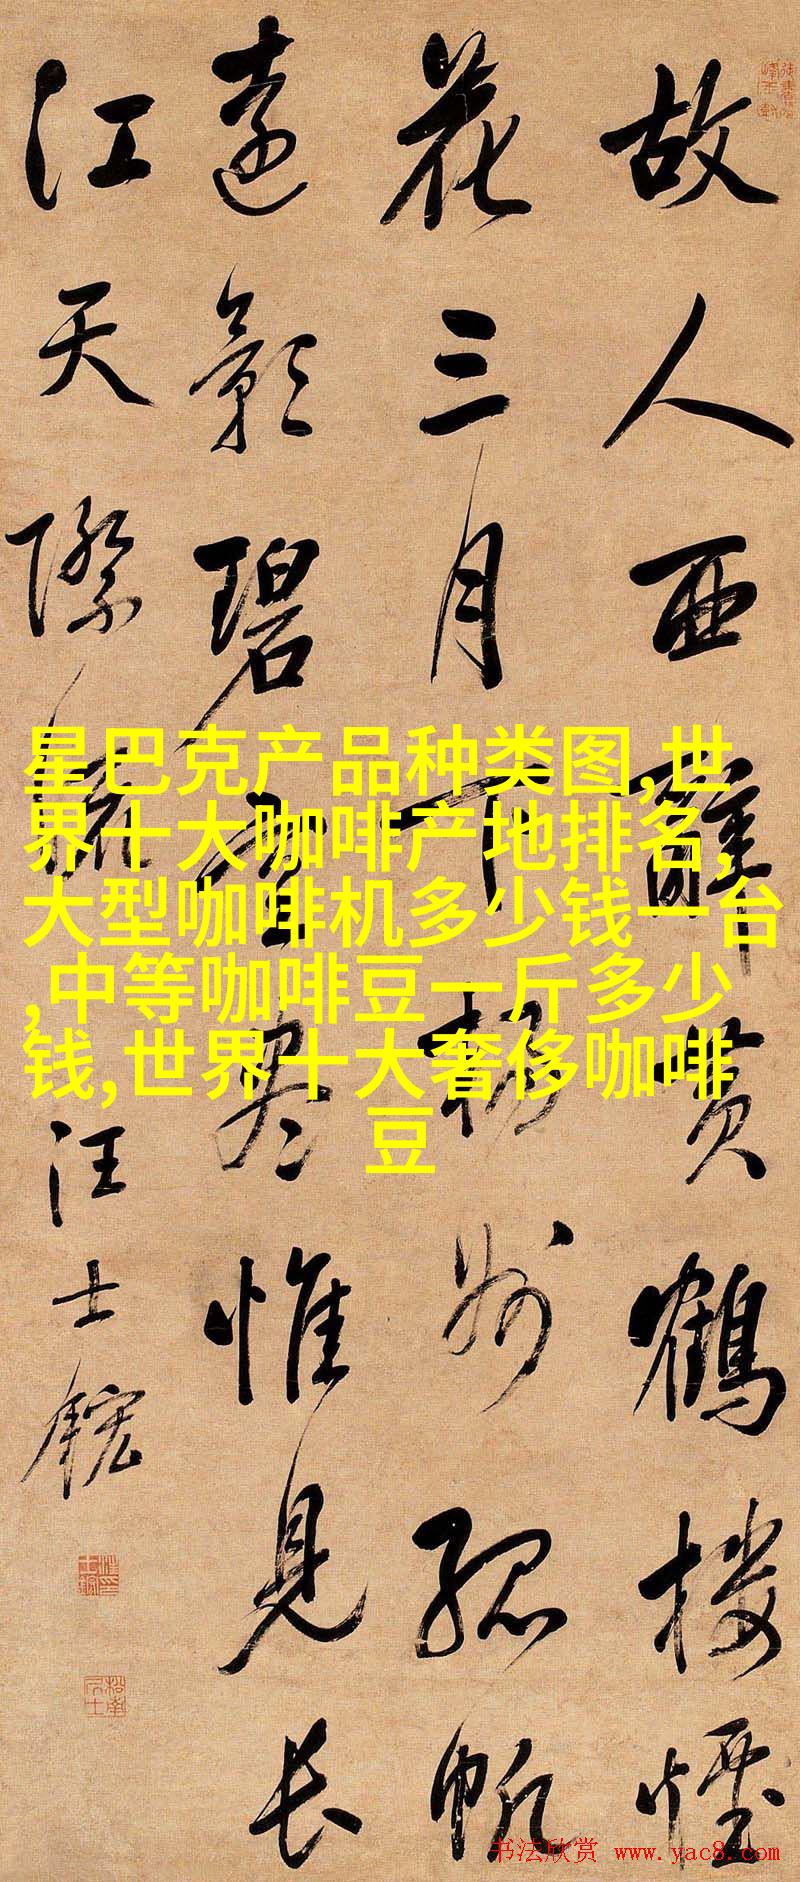 故人西辭黃鶴樓煙
花三月下揚州孤帆
遠影碧空盡惟見長
江天際流
汪士鋐
星巴克产品种类图,世
界十大咖啡产地排名,
大型咖啡机多少钱一台
,中等咖啡豆一斤多少
钱,世界十大奢侈咖啡
豆
书法欣赏 www.yac8.com